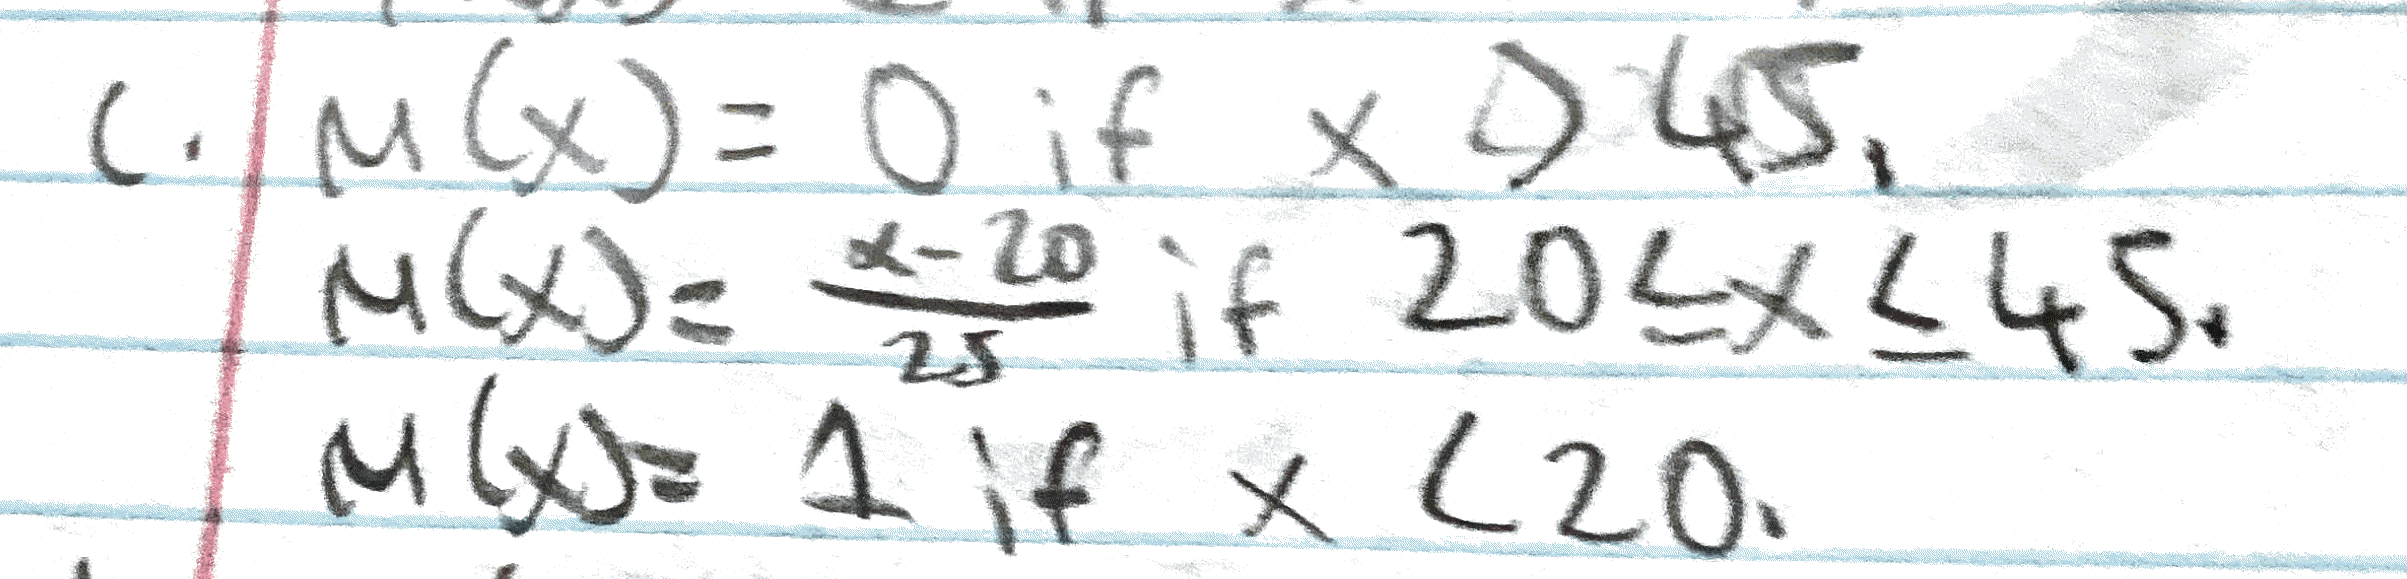 c. μ(x) = 0 if x > 45.
μ(x) = (x-20)/25 if 20 ≤ x ≤ 45.
μ(x) = 1 if x < 20.